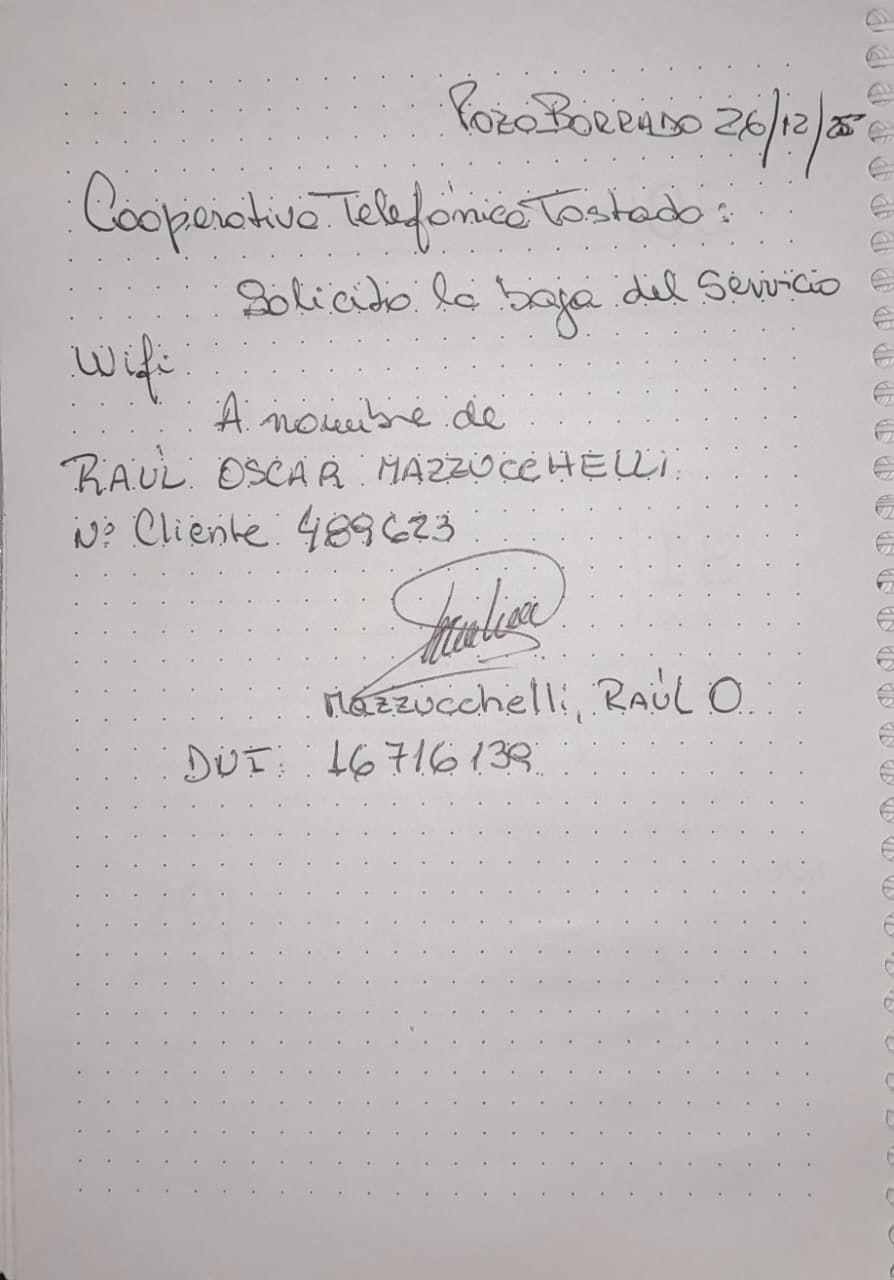 Pozo Borrado 26/12/25
Cooperativa Telefónica Tostado:
Solicito la baja del Servicio
Wifi
A nombre de
RAÚL OSCAR MAZZUCCHELLI
Nº Cliente 489623
Mazzucchelli, RAÚL O
DNI: 16716139